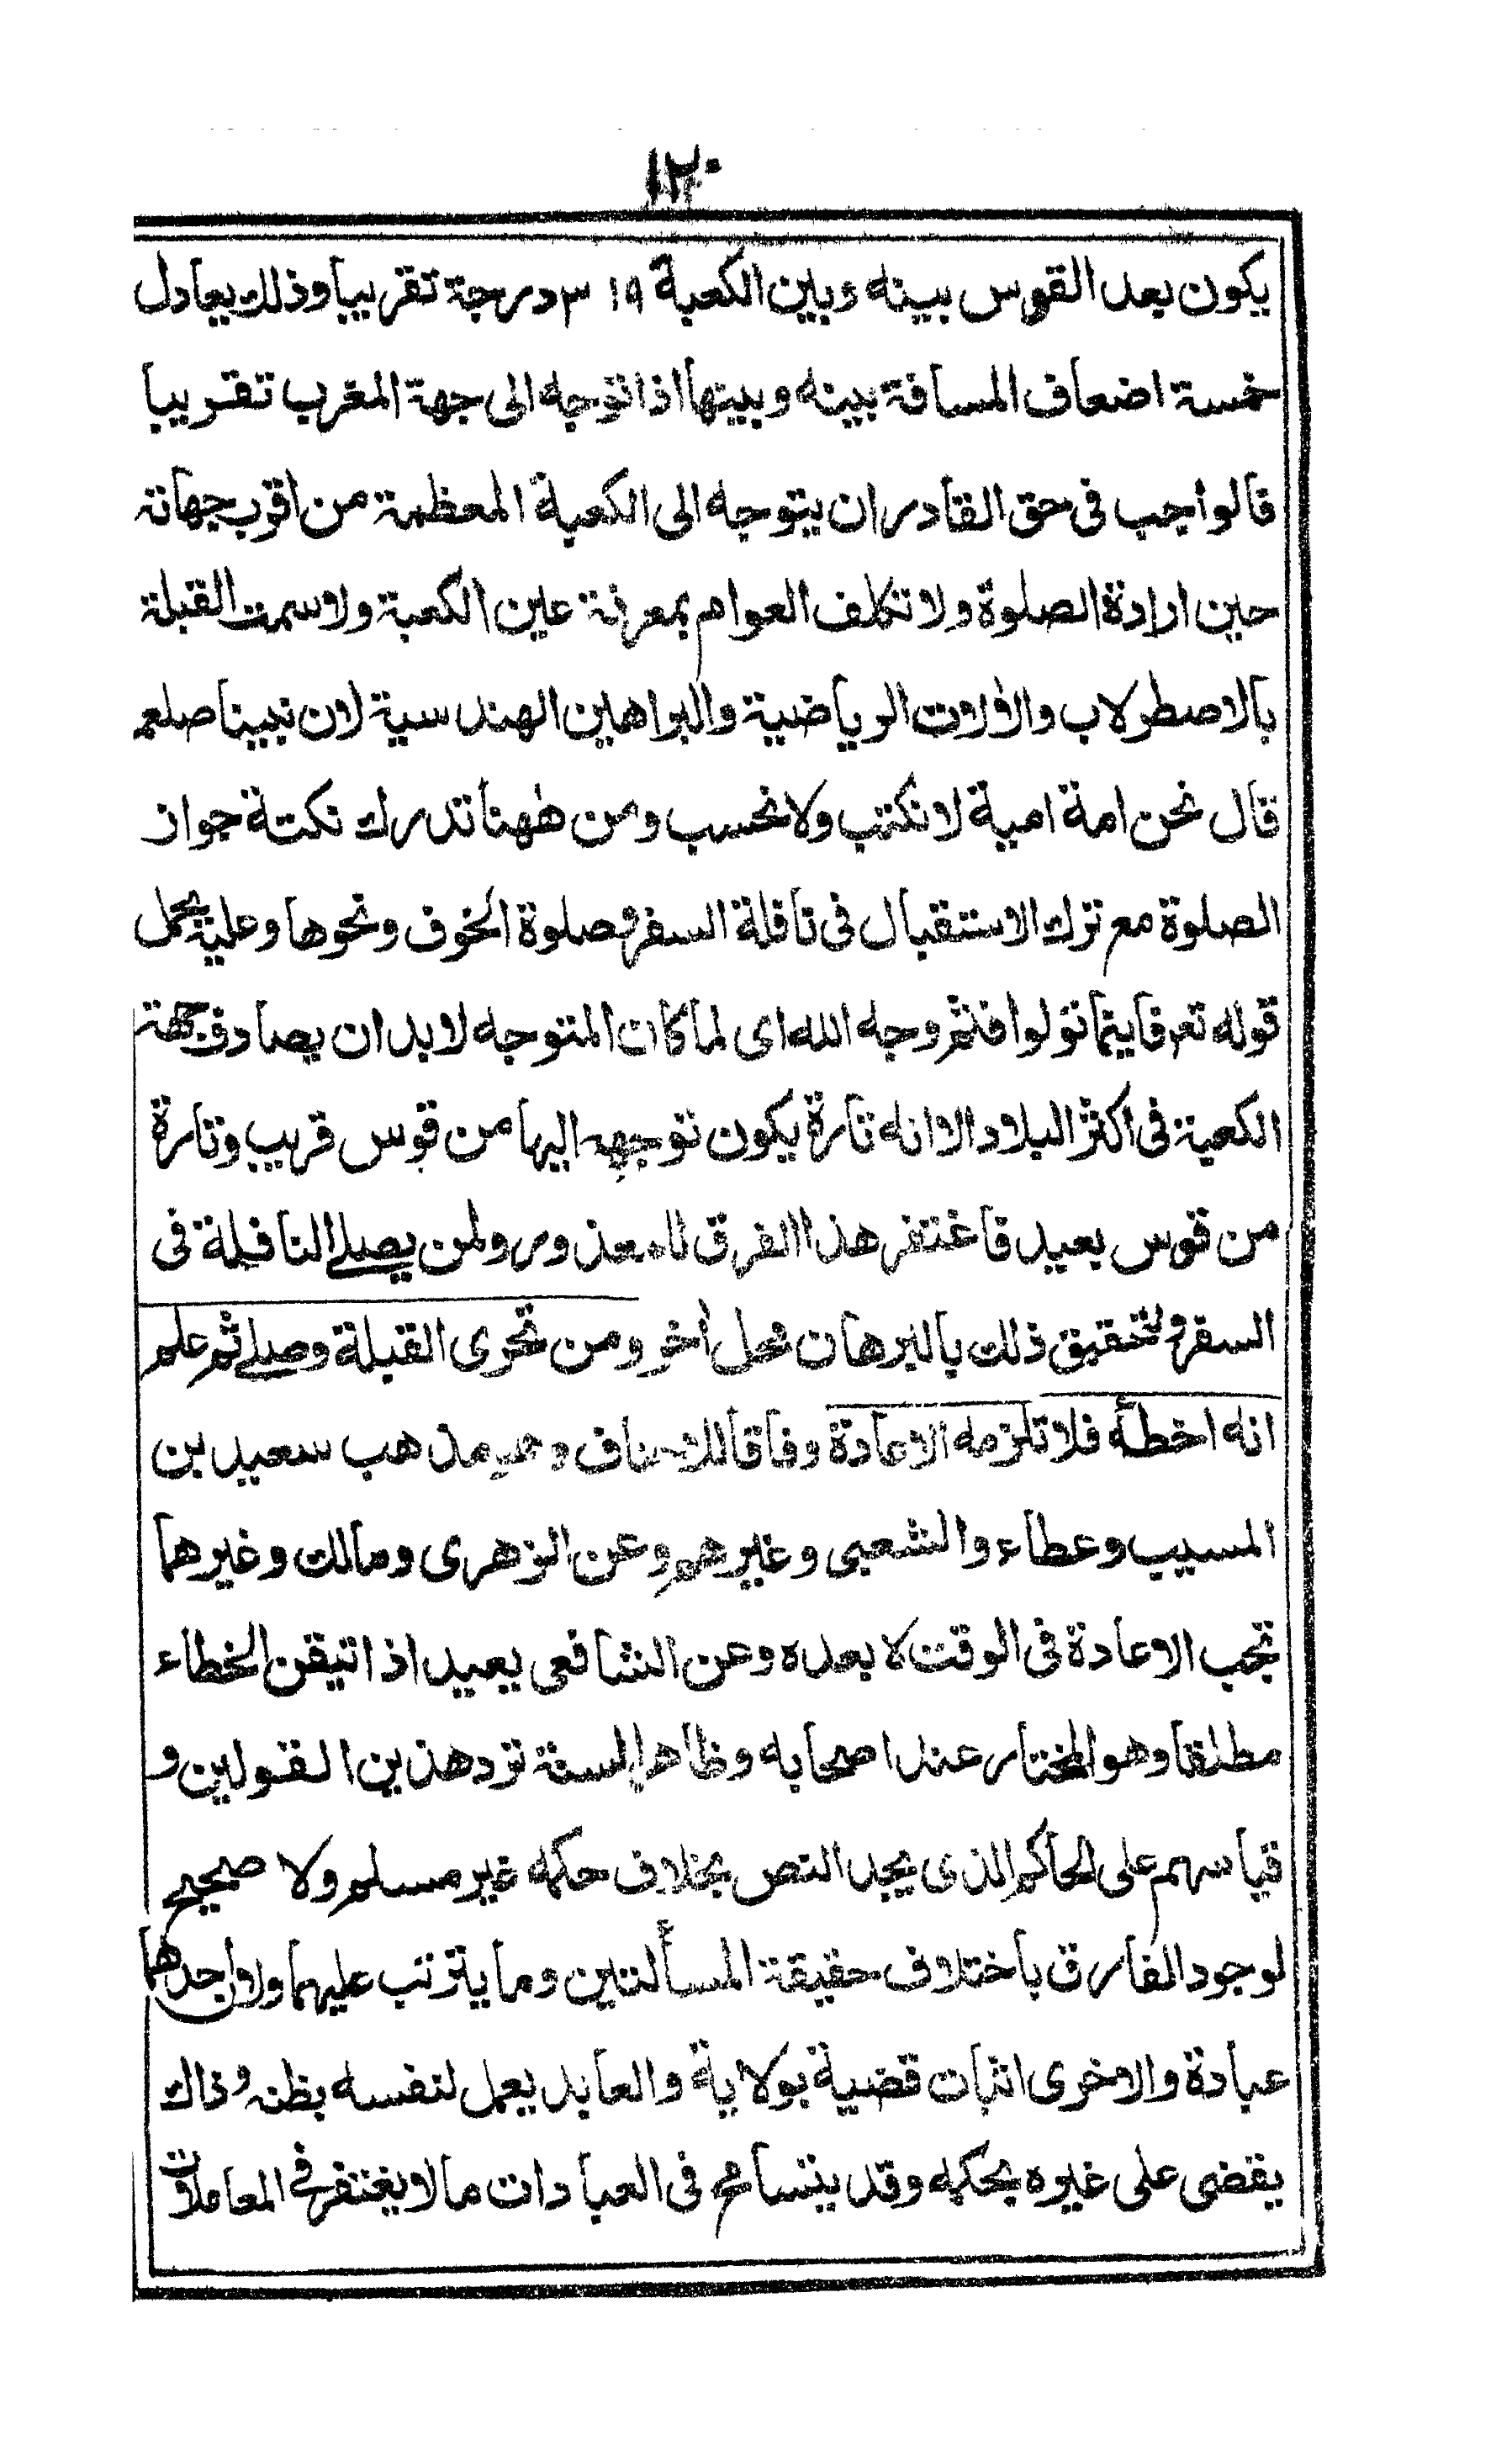 ١٢٠
يكون بعد القوس بينه وبين الكعبة ٣١٩ درجة تقريبا وذلك يعادل
خمسة اضعاف المسافة بينه وبينها اذا توجه الى جهة المغرب تقريبا
فالواجب فى حق القادر ان يتوجه الى الكعبة المعظمة من اقرب جهاته
حين ارادة الصلوة ولا تكلف العوام بمعرفة عين الكعبة ولا سمت القبلة
بالاصطرلاب والالات الرياضية والبراهين الهندسية لان نبينا صلعم
قال نحن امة امية لا نكتب ولا نحسب ومن ههنا تدرك نكتة جواز
الصلوة مع ترك الاستقبال فى نافلة السفر وصلوة الخوف ونحوها وعليه يحمل
قوله تعم فاينما تولوا فثم وجه الله اى لما كان المتوجه لا بد ان يصادف جهة
الكعبة فى اكثر البلاد الا انه تارة يكون توجهه اليها من قوس قريب وتارة
من قوس بعيد فاغتفر هذا الفرق للمعذور ولمن يصلى النافلة فى
السفر ولتحقيق ذلك بالبرهان محل أخر ومن تحرى القبلة وصلى ثم علم
انه اخطأ فلا تلزمه الاعادة وفاقا للاحناف وهو مذهب سعيد بن
المسيب وعطاء والشعبى وغيرهم وعن الزهرى ومالك وغيرهما
تجب الاعادة فى الوقت لا بعده وعن الشافعى يعيد اذا تيقن الخطاء
مطلقا وهو المختار عند اصحابه وظاهر السنة ترد هذين القولين و
قياسهم على الحاكم الذى يجد النص بخلاف حكمه غير مسلم ولا صحيح
لوجود الفارق باختلاف حقيقة المسألتين وما يترتب عليهما ولان احدهما
عبادة والاخرى اثبات قضية بولاية والعابد يعمل لنفسه بظنه وذاك
يقضى على غيره بحكمه وقد يتسامح فى العبادات ما لا يغتفر فى المعاملات